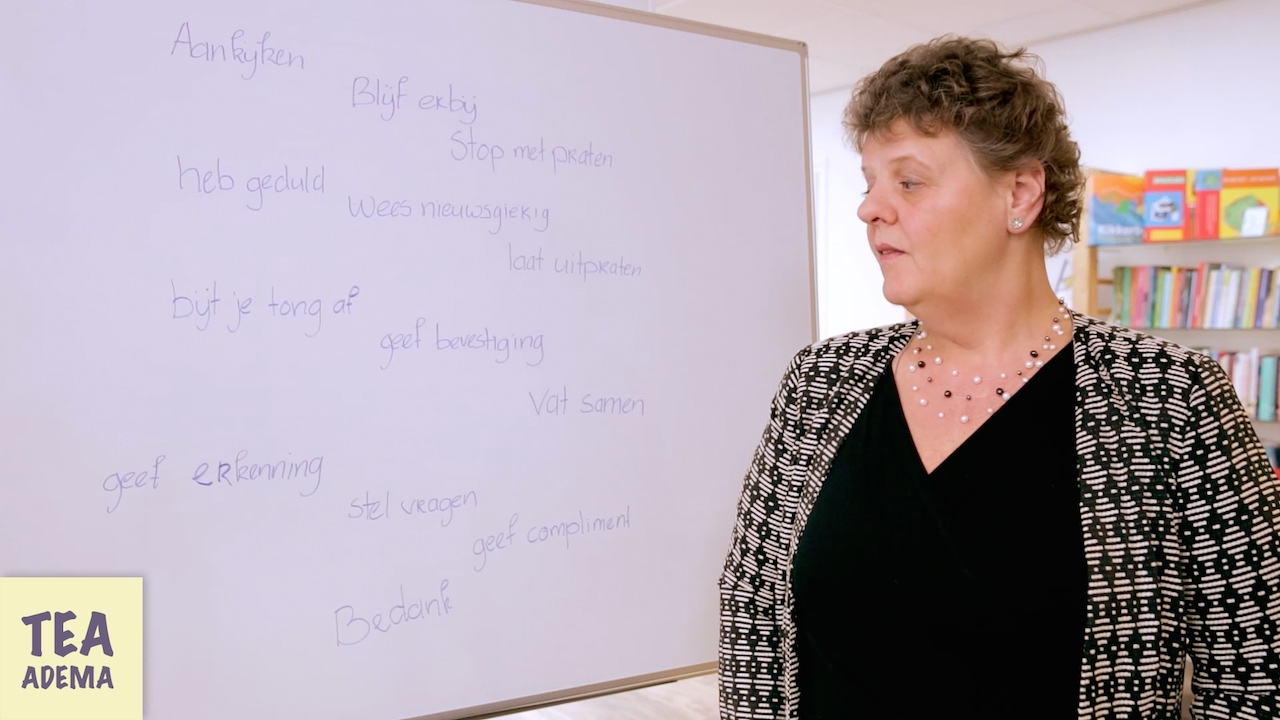 Aankijken
Blijf erbij
Stop met praten
heb geduld
Wees nieuwsgierig
laat uitpraten
bijt je tong af
geef bevestiging
Vat samen
geef erkenning
stel vragen
geef compliment
Bedank
TEA
ADEMA